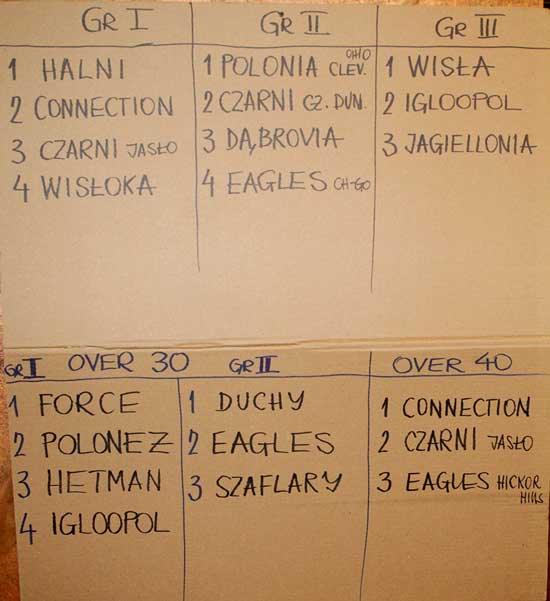 GR I
1 HALNI
2 CONNECTION
3 CZARNI JASŁO
4 WISŁOKA
GR II
1 POLONIA OHIO CLEV.
2 CZARNI CZ. DUN.
3 DĄBROVIA
4 EAGLES CH-GO
GR III
1 WISŁA
2 IGLOOPOL
3 JAGIELLONIA
GR I OVER 30 GR II
1 FORCE
2 POLONEZ
3 HETMAN
4 IGLOOPOL
1 DUCHY
2 EAGLES
3 SZAFLARY
OVER 40
1 CONNECTION
2 CZARNI JASŁO
3 EAGLES HICKOR HILLS